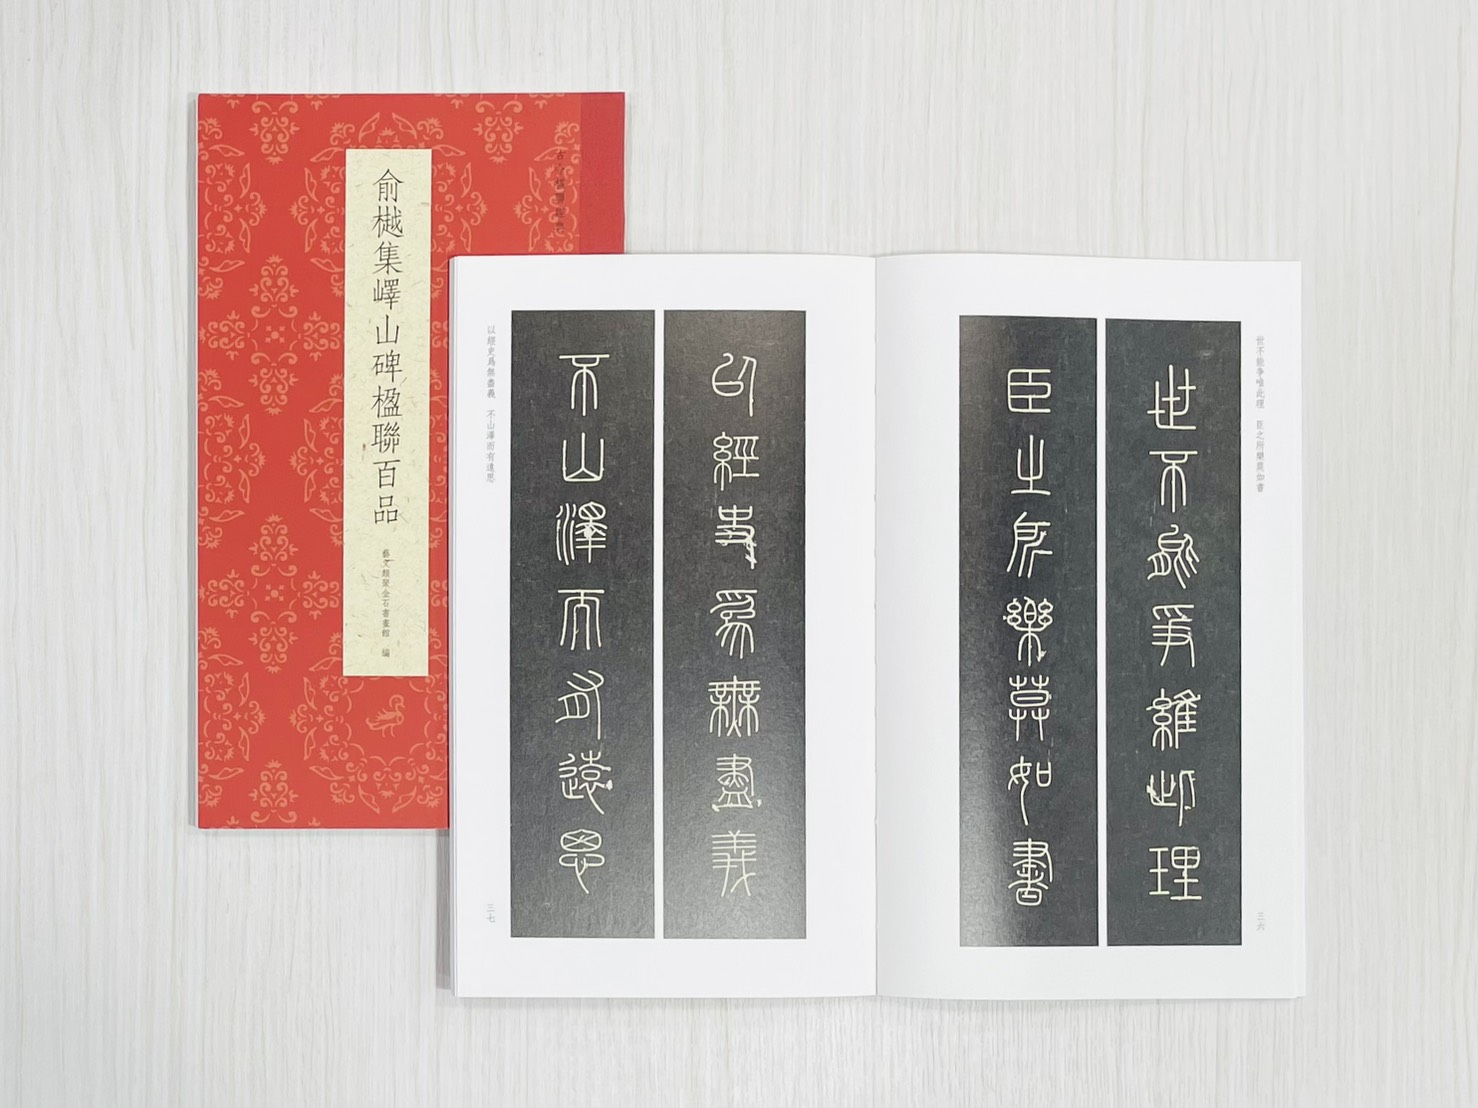 俞樾集嶧山碑楹聯百品
藝文類聚金石書畫館 編
世不能爭唯此理 臣之所樂莫如書
世不能爭維此理
臣之所樂莫如書
三六
以經史爲無盡義
不山澤而有遠思
以經史爲無盡義 不山澤而有遠思
三七